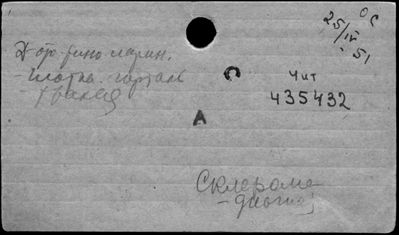 ОС
25/IV 51
Д-ор-рино-ларин.
- глотка. гортань
Чит
435432
С
А
Склерома
- диагноз